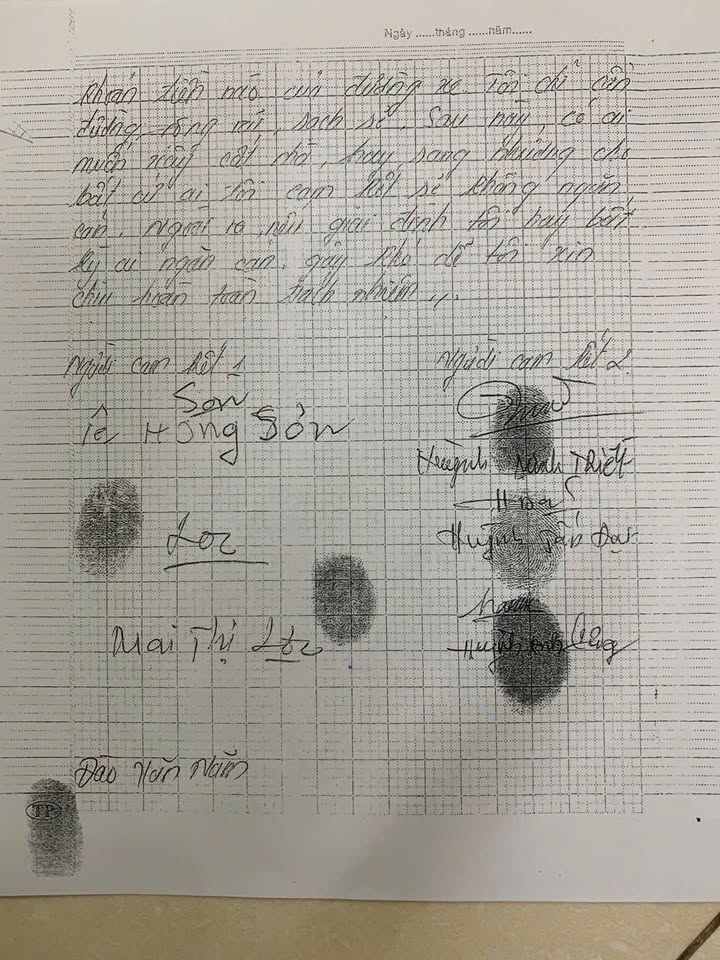 Ngày ......tháng ......năm......
khoản tiền nào của đường xe. Tôi chỉ cần
đường rộng rãi, sạch sẽ. Sau này có ai
muốn xây cất nhà, hay sang nhượng cho
bất cứ ai tôi cam kết sẽ không ngăn
cản. Ngoài ra nếu gia đình tôi hay bất
kỳ ai ngăn cản, gây khó dễ tôi xin
chịu hoàn toàn trách nhiệm.
Người cam kết 1
Người cam kết 2
Sơn
Lê Hồng Sơn
Huỳnh Minh Triết
Lộc
Huỳnh Tấn Đạt
Mai Thị Lộc
Huỳnh
Đào Văn Năm
TP